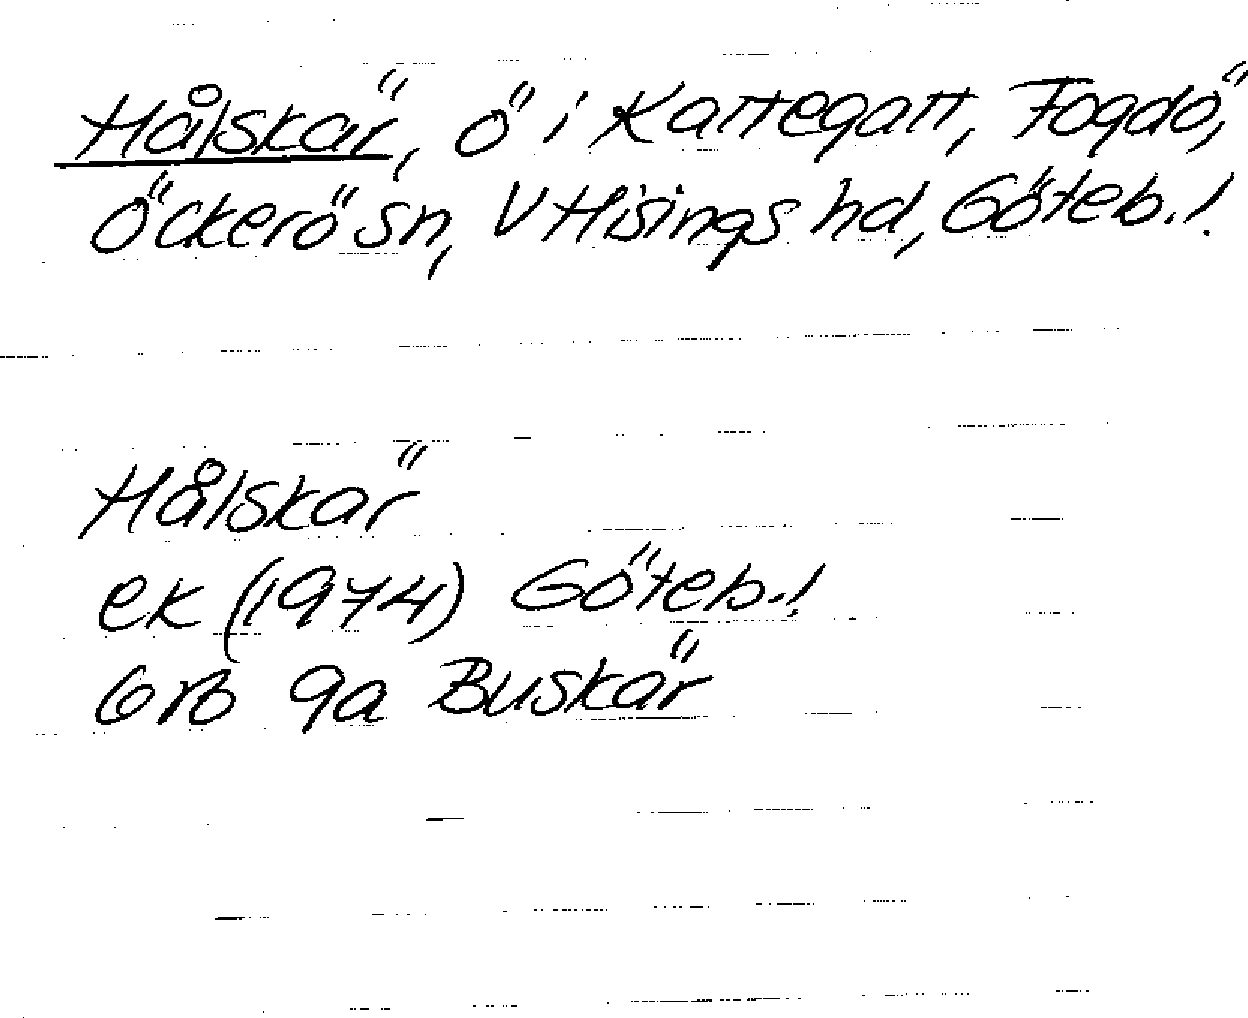 Hålskär, ö i Kattegatt, Fogdö,
Öckerö sn, V Hisings hd, Göteb.!
Hålskär
ek (1974) Göteb.!
6 B 9a Buskär